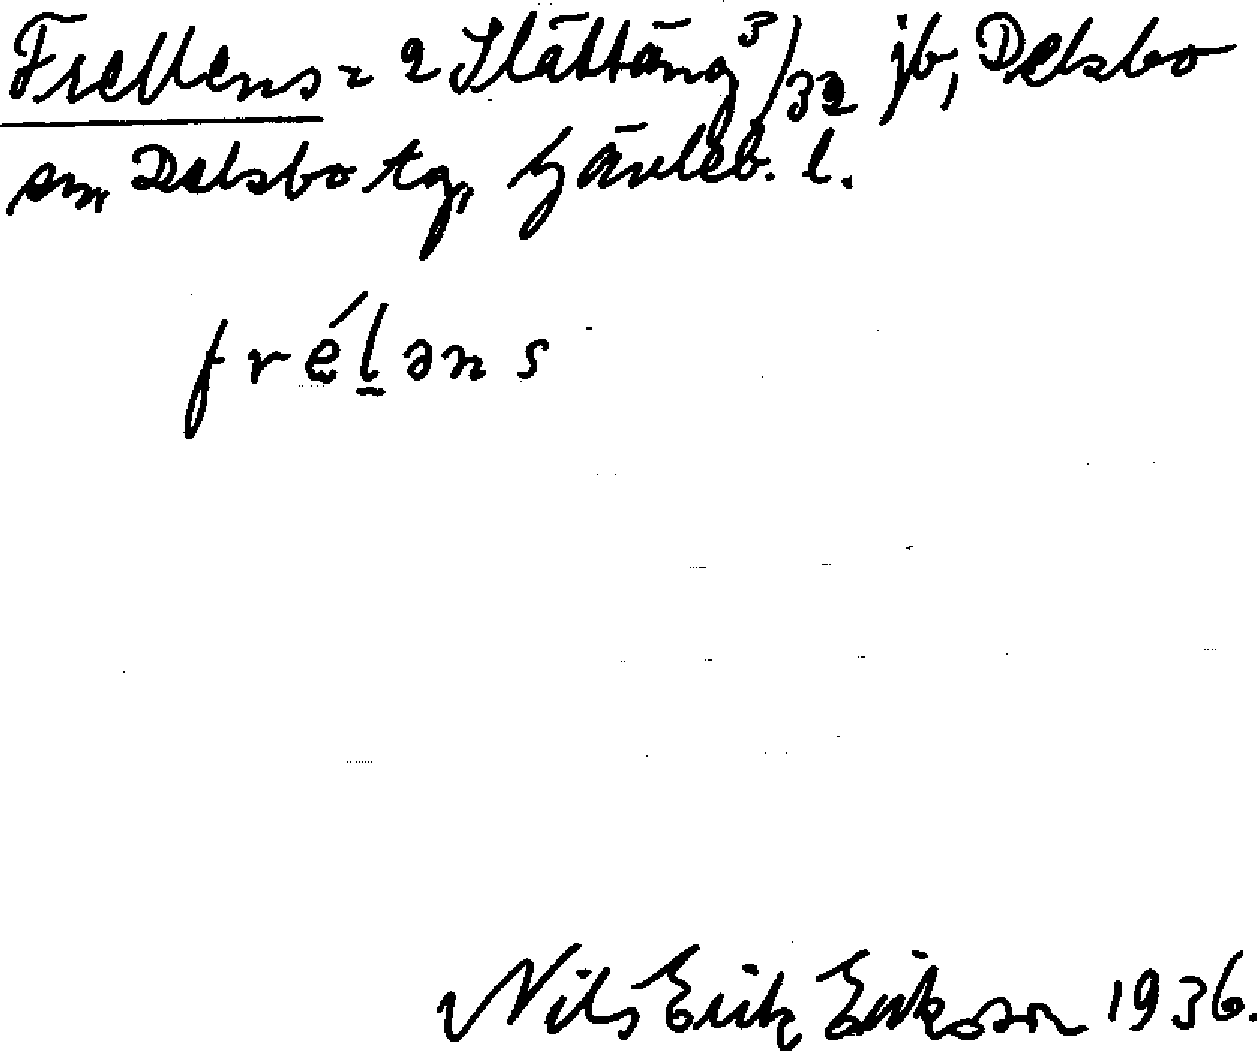 Frellens = 2 Slättäng 3/32 jb, Delsbo
sn, Delsbo tg, Gävleb. l.
fréləns
Nils Erik Erikson 1936.